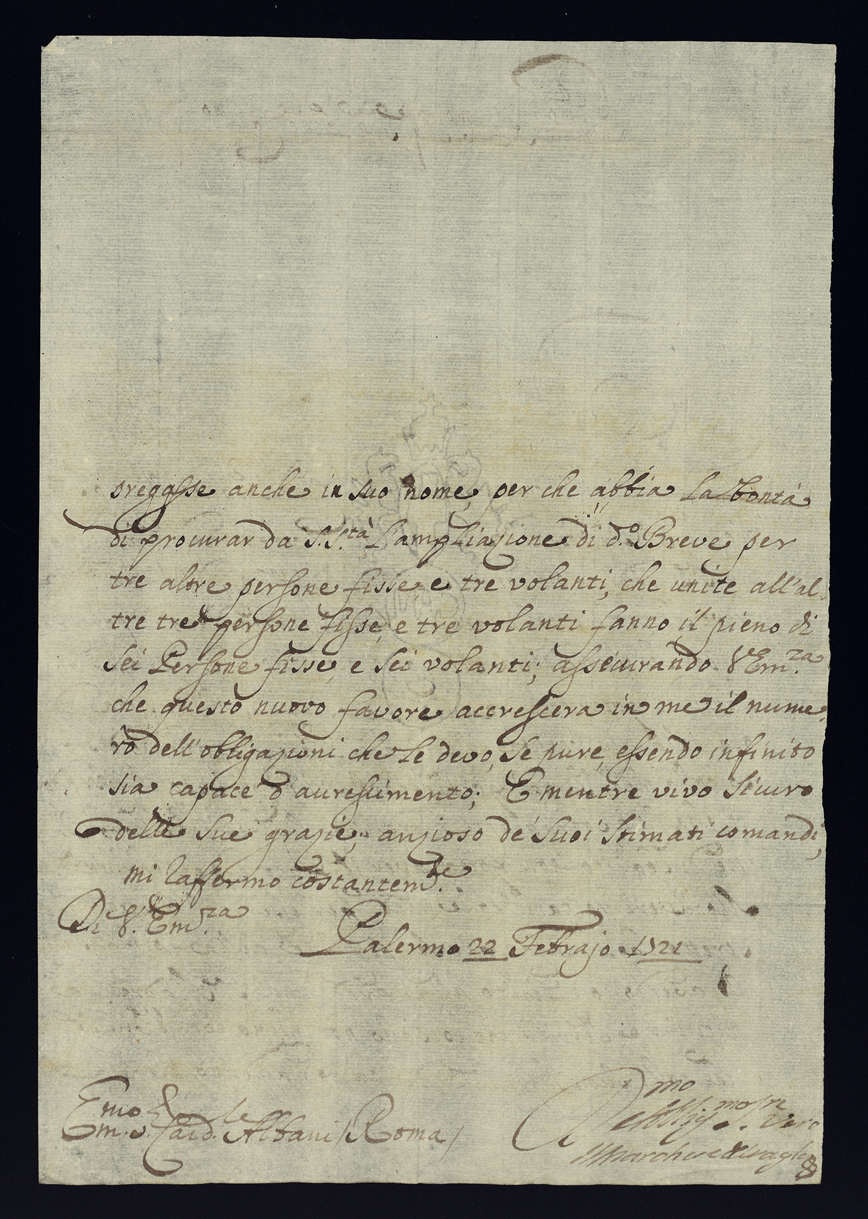 pregasse anche in suo nome, per che abbia la bontà
di procurar da S. S.tà l'ampliazione di d.o Breve per
tre altre persone fisse e tre volanti, che unite all'al
tre tre persone fisse, e tre volanti fanno il pieno di
sei Persone fisse, e sei volanti; assicurando V. Em.za
che questo nuovo favore accrescerà in me il nume
ro dell'obligazioni che le devo, se pure, essendo infinito
sia capace d'accrescimento; E mentre vivo sicuro
delle sue grazie, anzioso de' suoi stimati comandi,
mi raffermo costantem.te
Di V. Em.za
Palermo 22 Febrajo 1721
Em.mo S. Card.le Albani / Roma /
Marchese